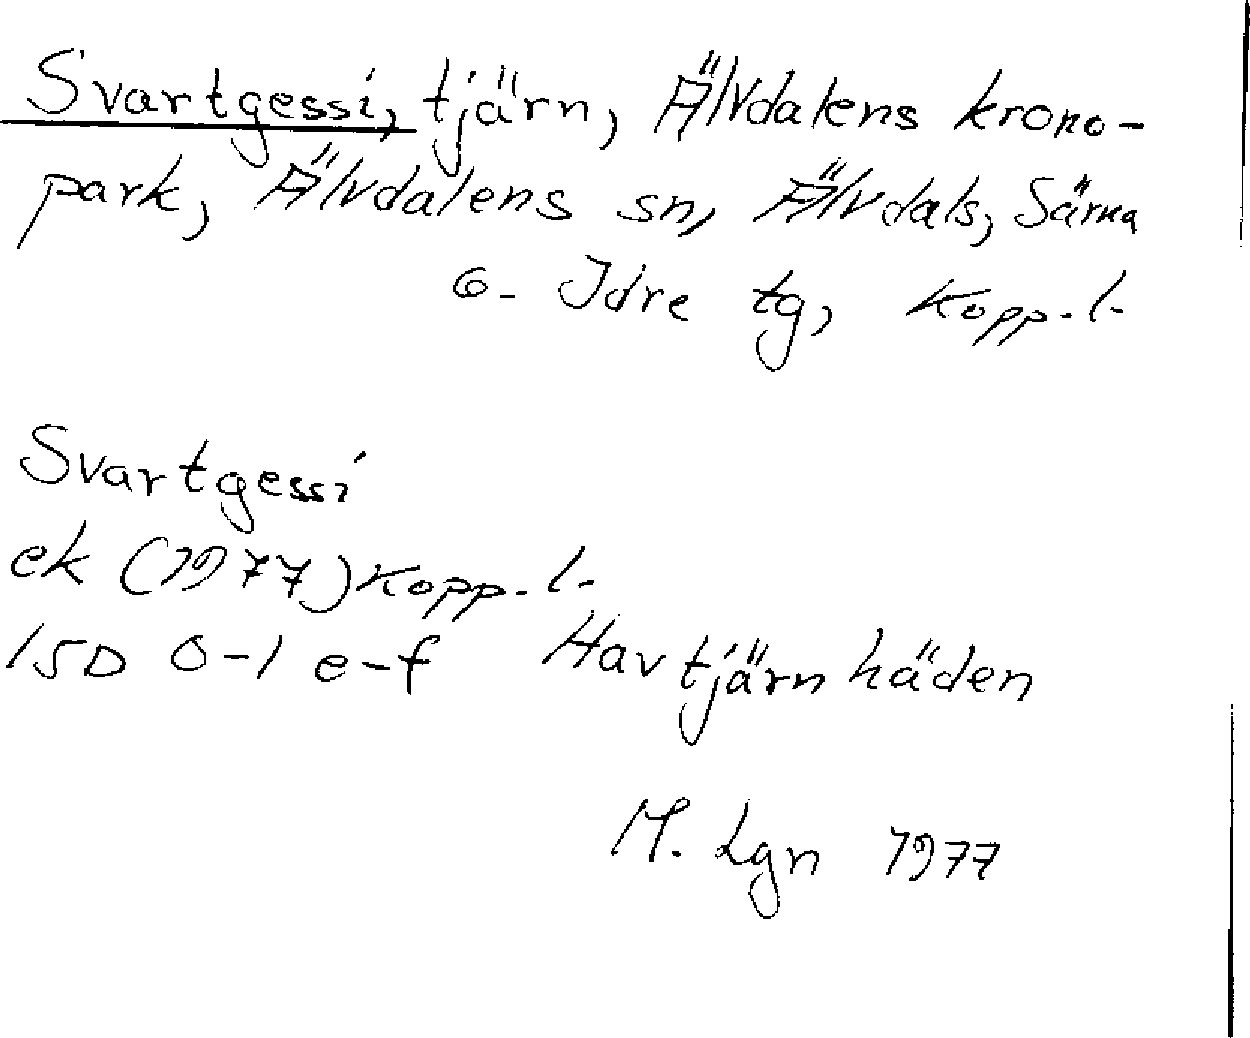 Svartgessi, tjärn, Älvdalens krono-
park, Älvdalens sn, Älvdals, Särna
o. Idre tg, Kopp. l.
Svartgessi
ek (1977) Kopp. l.
15D 0-1 e-f Havtjärnhäden
M. Lgn 1977